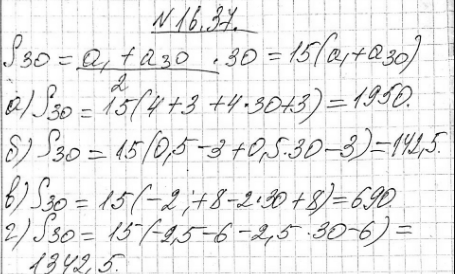 N 16.37.
S30 = a1 + a30 / 2 · 30 = 15(a1 + a30)
а) S30 = 15(4+3+4·30+3) = 1950.
б) S30 = 15(0,5-3+0,5·30-3) = 142,5.
в) S30 = 15(-2+8-2·30+8) = 690
г) S30 = 15(-2,5-6-2,5·30-6) =
1342,5.